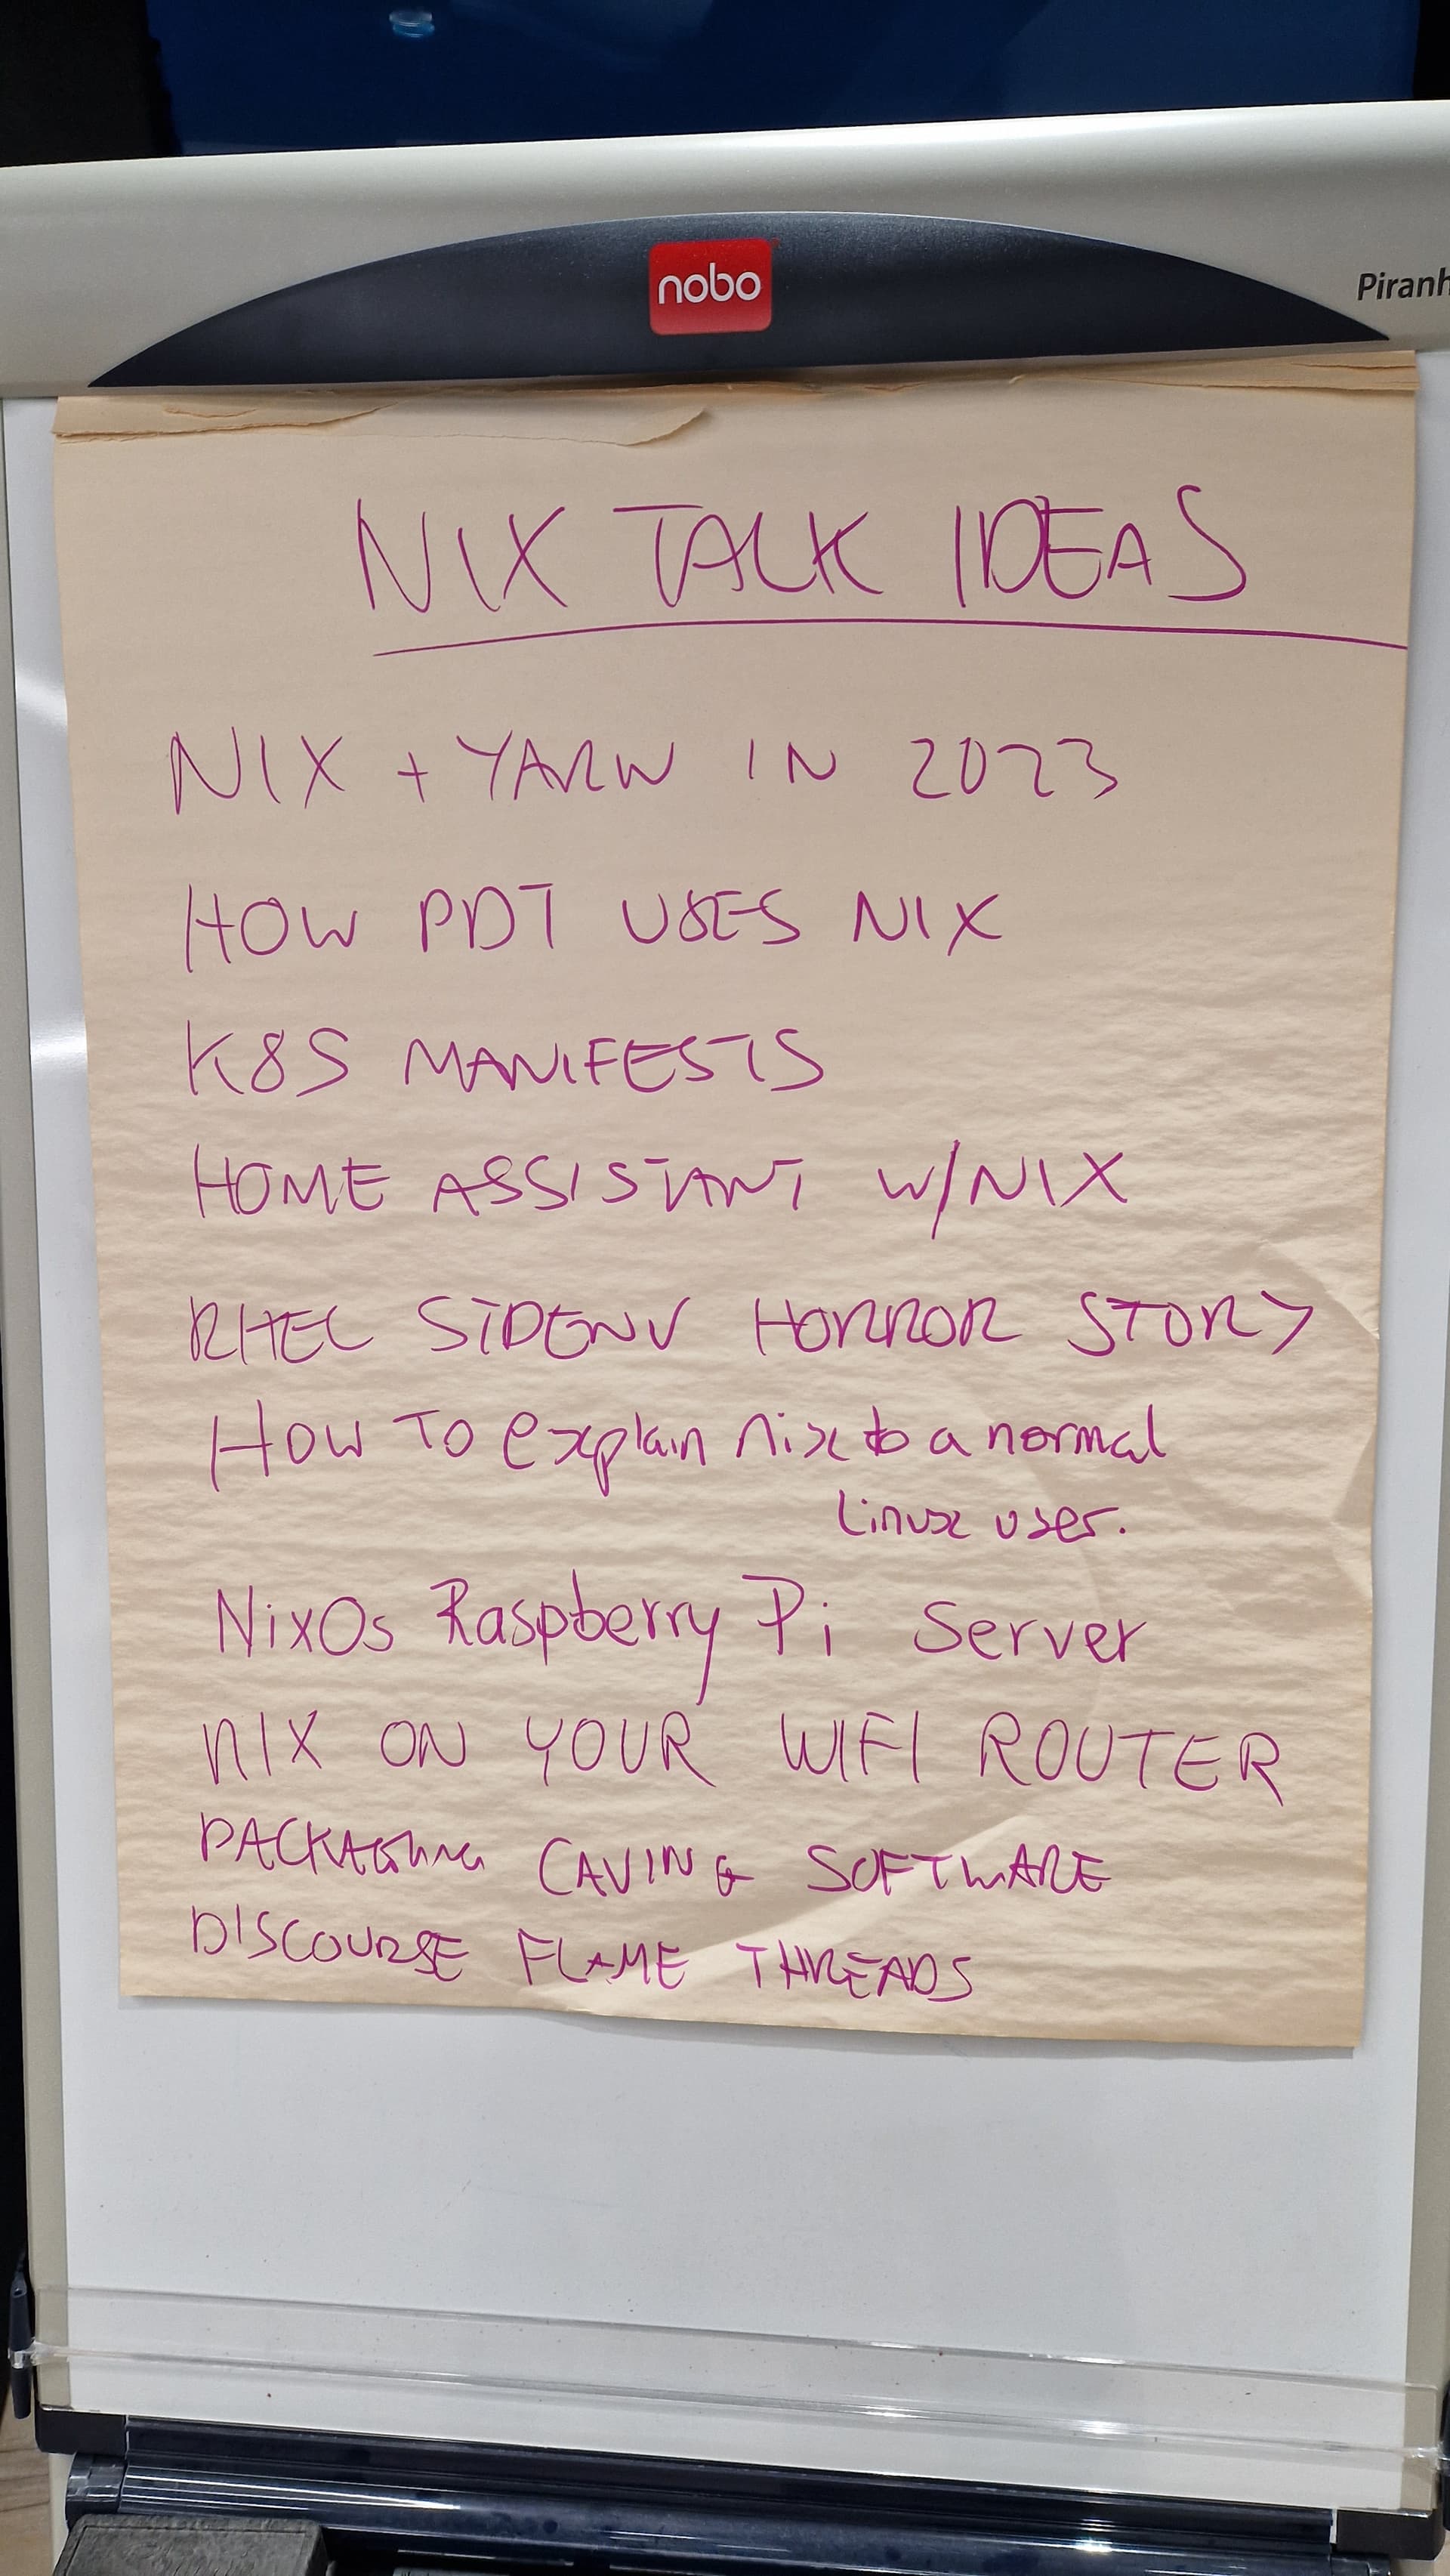 nobo
Piranh
NIX TALK IDEAS
NIX + YARN IN 2023
HOW PDT USES NIX
K8S MANIFESTS
HOME ASSISTANT W/NIX
RHEL STDENV HORROR STORY
HOW TO explain nix to a normal
Linux user.
NixOs Raspberry Pi Server
NIX ON YOUR WIFI ROUTER
PACKAGING CAVING SOFTWARE
DISCOURSE FLAME THREADS